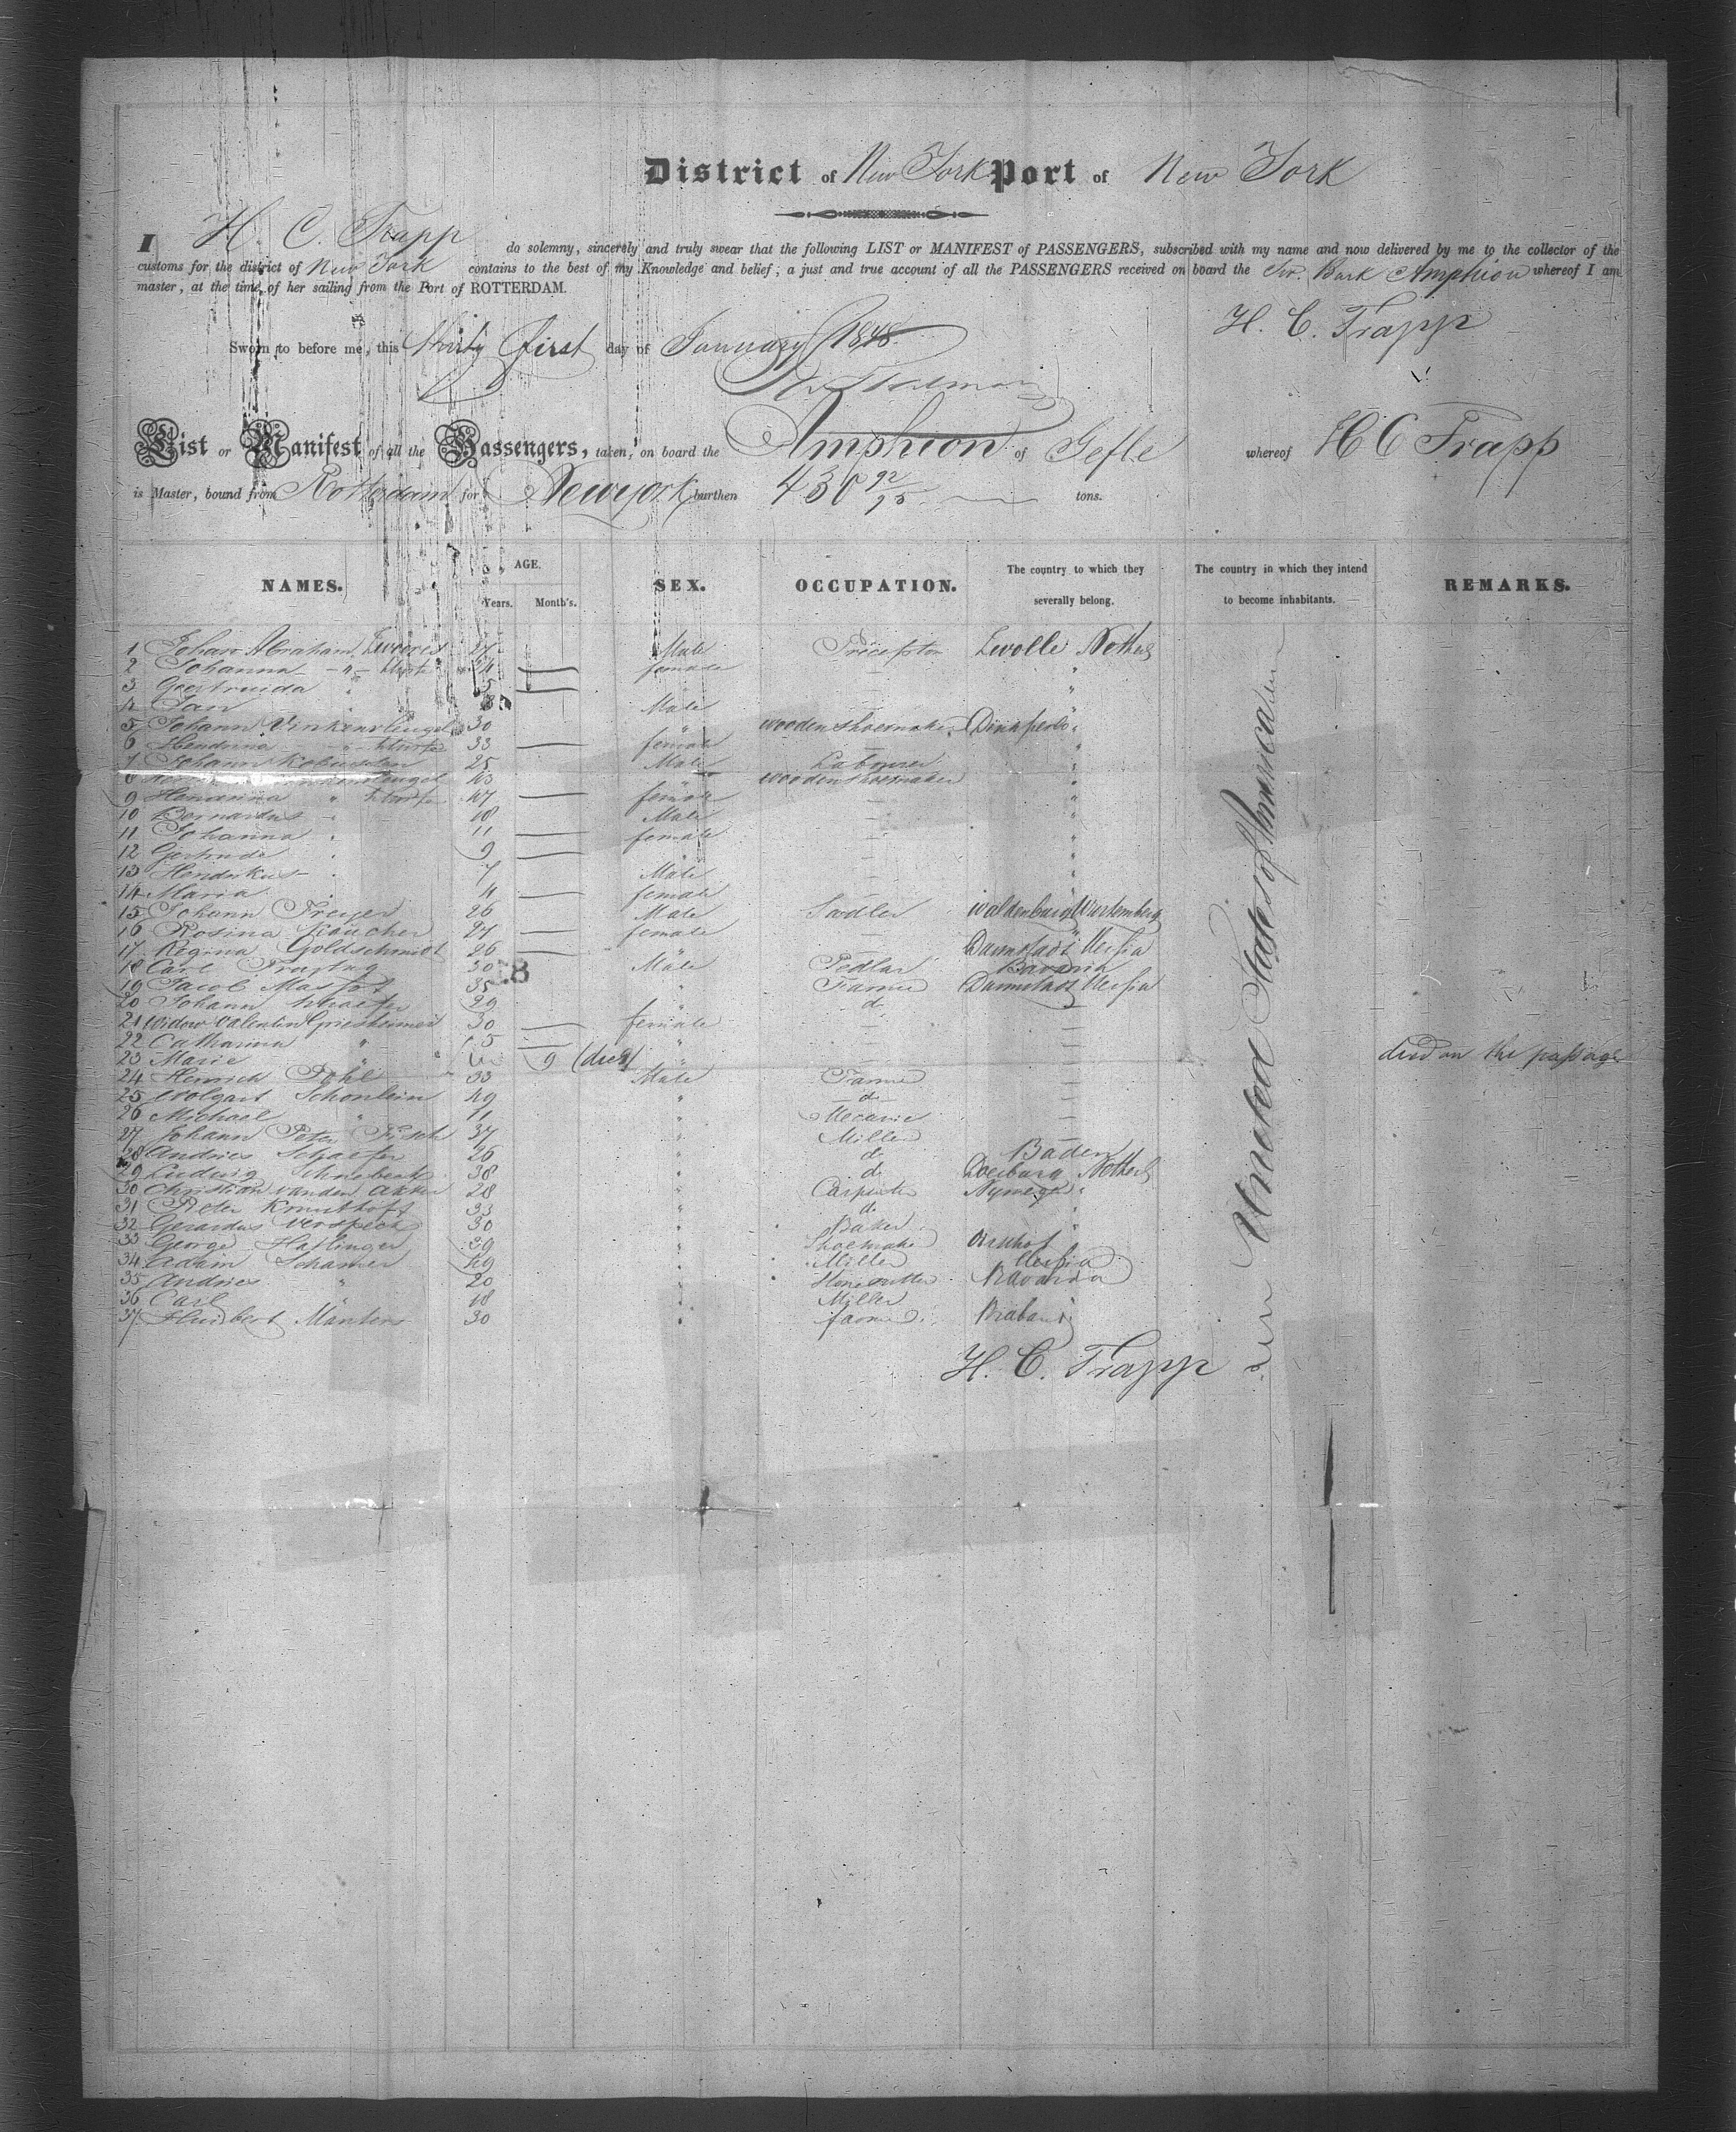 District of New York Port of New York
I H. C. Trapp do solemny, sincerely and truly swear that the following LIST or MANIFEST of PASSENGERS, subscribed with my name and now delivered by me to the collector of the
customs for the district of New York contains to the best of my Knowledge and belief, a just and true account of all the PASSENGERS received on board the Sw. Bark Amphion whereof I am
master, at the time of her sailing from the Port of ROTTERDAM.
H. C. Trapp
Sworn to before me, this Thirty first day of January 1848
List or Manifest of all the Passengers, taken on board the Amphion of Gefle whereof H C Trapp
is Master, bound from Rotterdam for Newyork burthen 430 92/95 tons.
NAMES. AGE. Years. Month's. SEX. OCCUPATION. The country to which they severally belong. The country in which they intend to become inhabitants. REMARKS.
1 Johan Abraham 27 Male Zwolle Netherl
2 Johanna " 24 female "
3 Geertruida " 5 "
4 Jan " Male "
5 Johann 30 " wooden shoemaker "
6 Hendrina " 33 female "
7 Johann 25 Male Labourer "
8 43 " wooden shoemaker "
9 Hendrina " 47 female "
10 Bernardus " 18 Male "
11 Johanna " 11 female "
12 Gertrude " 9 " "
13 Hendrikus " 7 Male "
14 Maria " 4 female "
15 Johann Freyer 26 Male Sadler Waldenburg Wurtemberg
16 Rosina 27 female "
17 Regina Goldschmidt 26 " Darmstadt Hessia
18 Carl Freytag 30 Male Pedlar Bavaria
19 Jacob 35 " Farmer Darmstadt Hessia
20 Johann Schaefer 29 " d
21 Widow Valentin Griesheimer 30 female
22 Catharina " 5 "
23 Marie " " 9 (died) " died on the passage
24 Heinrich Pohl 33 Male Farmer
25 Wolgast Schonlein 49 " d
26 Michael " 11 " Mecanic
27 Johann Peter Fisch 37 " Miller
28 Andries Schaefer 26 " d Baden
29 Ludwig 38 " d Doesburg Netherl
30 Christian vanden Akker 28 " Carpenter Nymegen "
31 Pieter 33 " d "
32 Gerardus Verspeek 30 " Baker "
33 George Haslinger 39 " Shoemaker
34 Adam Schamer 49 " Miller Hessia
35 Andries " 20 " Stonecutter Bavaria
36 Carl " 18 " Miller "
37 Huibert Manters 30 " farmer Brabant
United States of American
H. C. Trapp